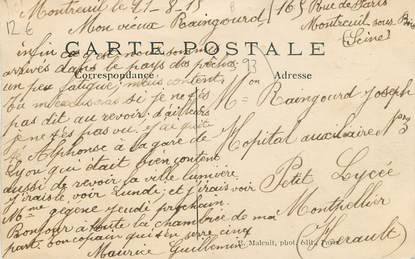 Montreuil le 21-8-15
165 Rue de Paris
Mon vieux Raingourd
Montreuil sous Bois
(Seine)
12 €
CARTE POSTALE
Correspondance
Adresse
93
enfin ça y est nous sommes
arrivés dans le pays des pêches
un peu fatigué, mais content,
Tu m'excuseras si je n'ai
pas dit au revoir, d'ailleurs
je ne t'ai pas vu, j'ai quitté
Alphonse à la gare de
Lyon qui était bien content
aussi de revoir la ville lumière
j'irais le voir Lundi et j'irais voir
Mme gigene jeudi prochain.
Bonjour à toute la chambrée de ma
part, ton copain qui t'en serre cinq
Maurice Guillemin
Mon
Mr Raingourd Joseph
Hopital auxiliaire No
Petit Lycée
Montpellier
(Herault)
Malcuit, phot. édit., Paris